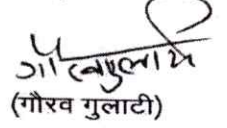 (गौरव गुलाटी)